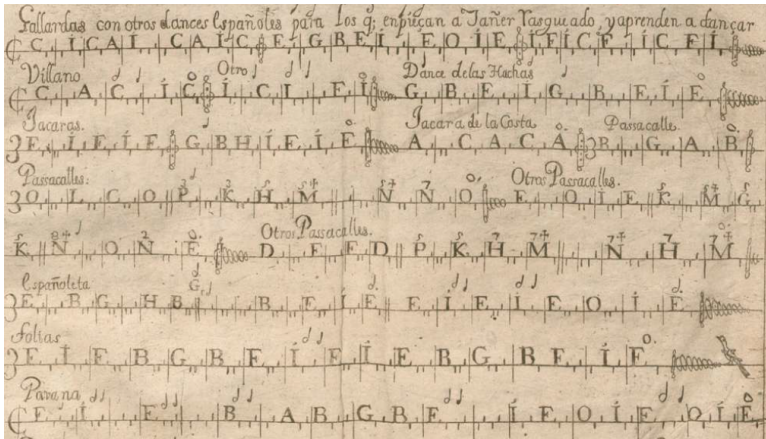 Gallardas con otros dances Españoles para los q; enpieçan a Tañer Rasgueado, y aprenden a dançar
C C I C A I C A I C E I G B E I I E O I E I E I C E I C E I
Villano Otro Dance de las Hachas
C C A C I C I C I E I G B E I G B E I E
Jacaras. Jacara de la Costa Passacalle.
3 E I E I E G B H I E I E A C A C A 3 B G A B
Passacalles: Otros Passacalles.
3 O L C O P K H M N N O E O I E K M G
Otros Passacalles.
K N O N E D E E D P K H M N H M
Españoleta
3 E B G H B G B E I E E I E I E O I E
folias
3 E I E B G B E I E I E B G B E I E
Pavana
C E I E B A B G B E I E O I E O I E